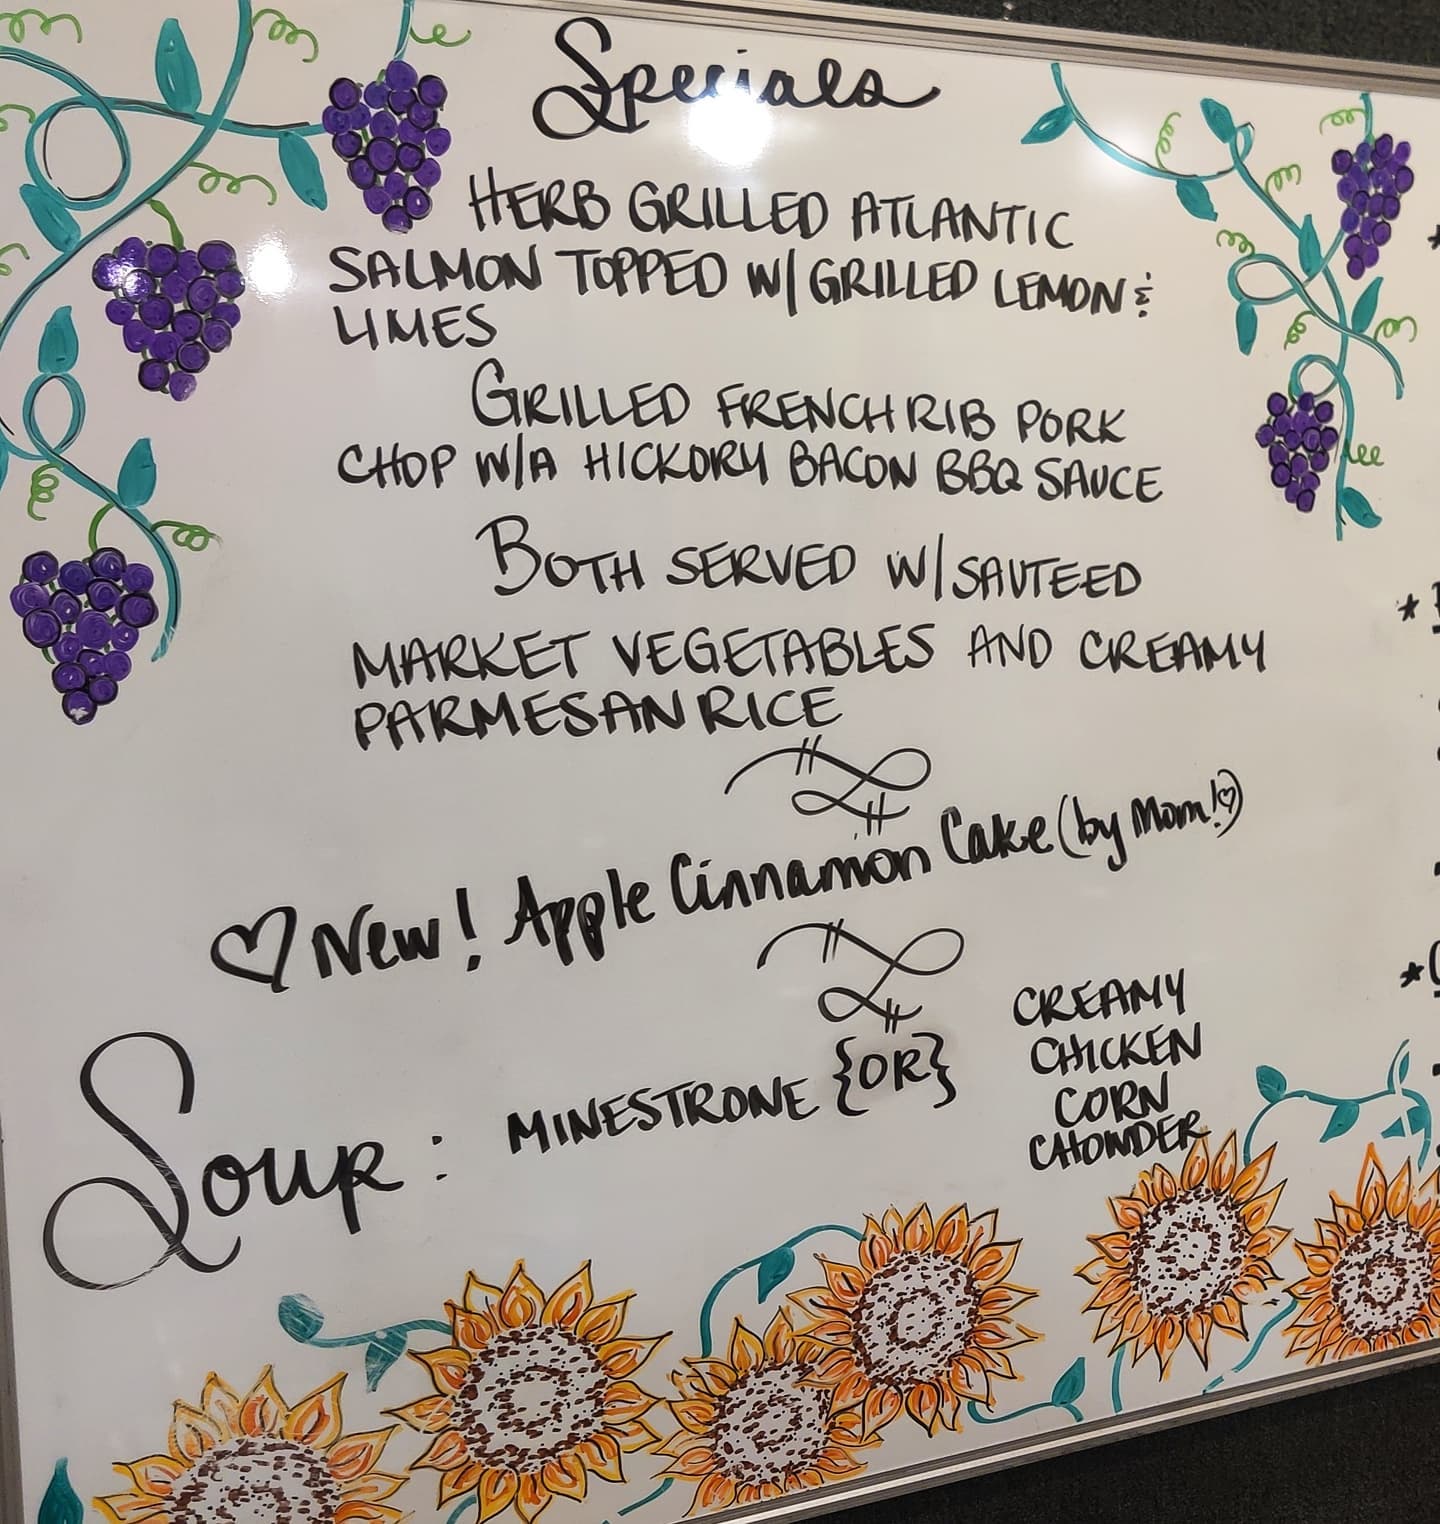 Specials
HERB GRILLED ATLANTIC
SALMON TOPPED W/ GRILLED LEMON &
LIMES
GRILLED FRENCH RIB PORK
CHOP W/A HICKORY BACON BBQ SAUCE
BOTH SERVED W/ SAUTEED
MARKET VEGETABLES AND CREAMY
PARMESAN RICE
♡ New! Apple Cinnamon Cake (by Mom!♡)
Soup: MINESTRONE {OR} CREAMY
CHICKEN
CORN
CHOWDER